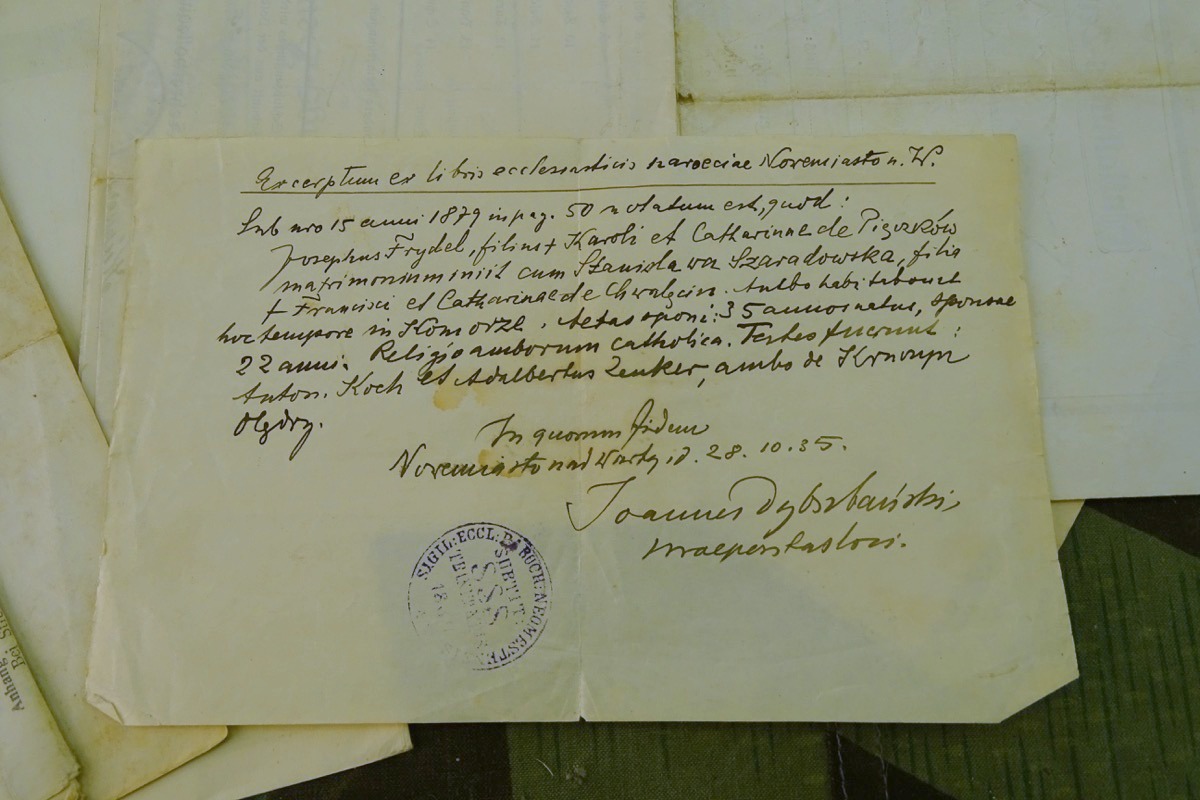 Excerptum ex libris ecclesiasticis paroeciae Novemiasto n. W.
Sub nro 15 anni 1879 in pag. 50 notatum est, quod:
Josephus Frydel, filius + Karoli et Catharinae de Pigozków
matrimonium iniit cum Stanislawa Szaradowska, filia
+ Francisci et Catharinae de Chwalęcin. Ambo habitabant
hoc tempore in Komorze. Aetas sponsi: 35 annos natus, sponsae
22 anni. Religio amborum catholica. Testes fuerunt:
Anton. Koch et Adalbertus Zenker, ambo de
In quorum fidem
Novemiasto nad Wartą, d. 28. 10. 35.
Joannes
praepositus loci.
SIGIL: ECCL: PAROCH: NEOMESTE
SUBTIT:
SSS
Anhang:
Bei